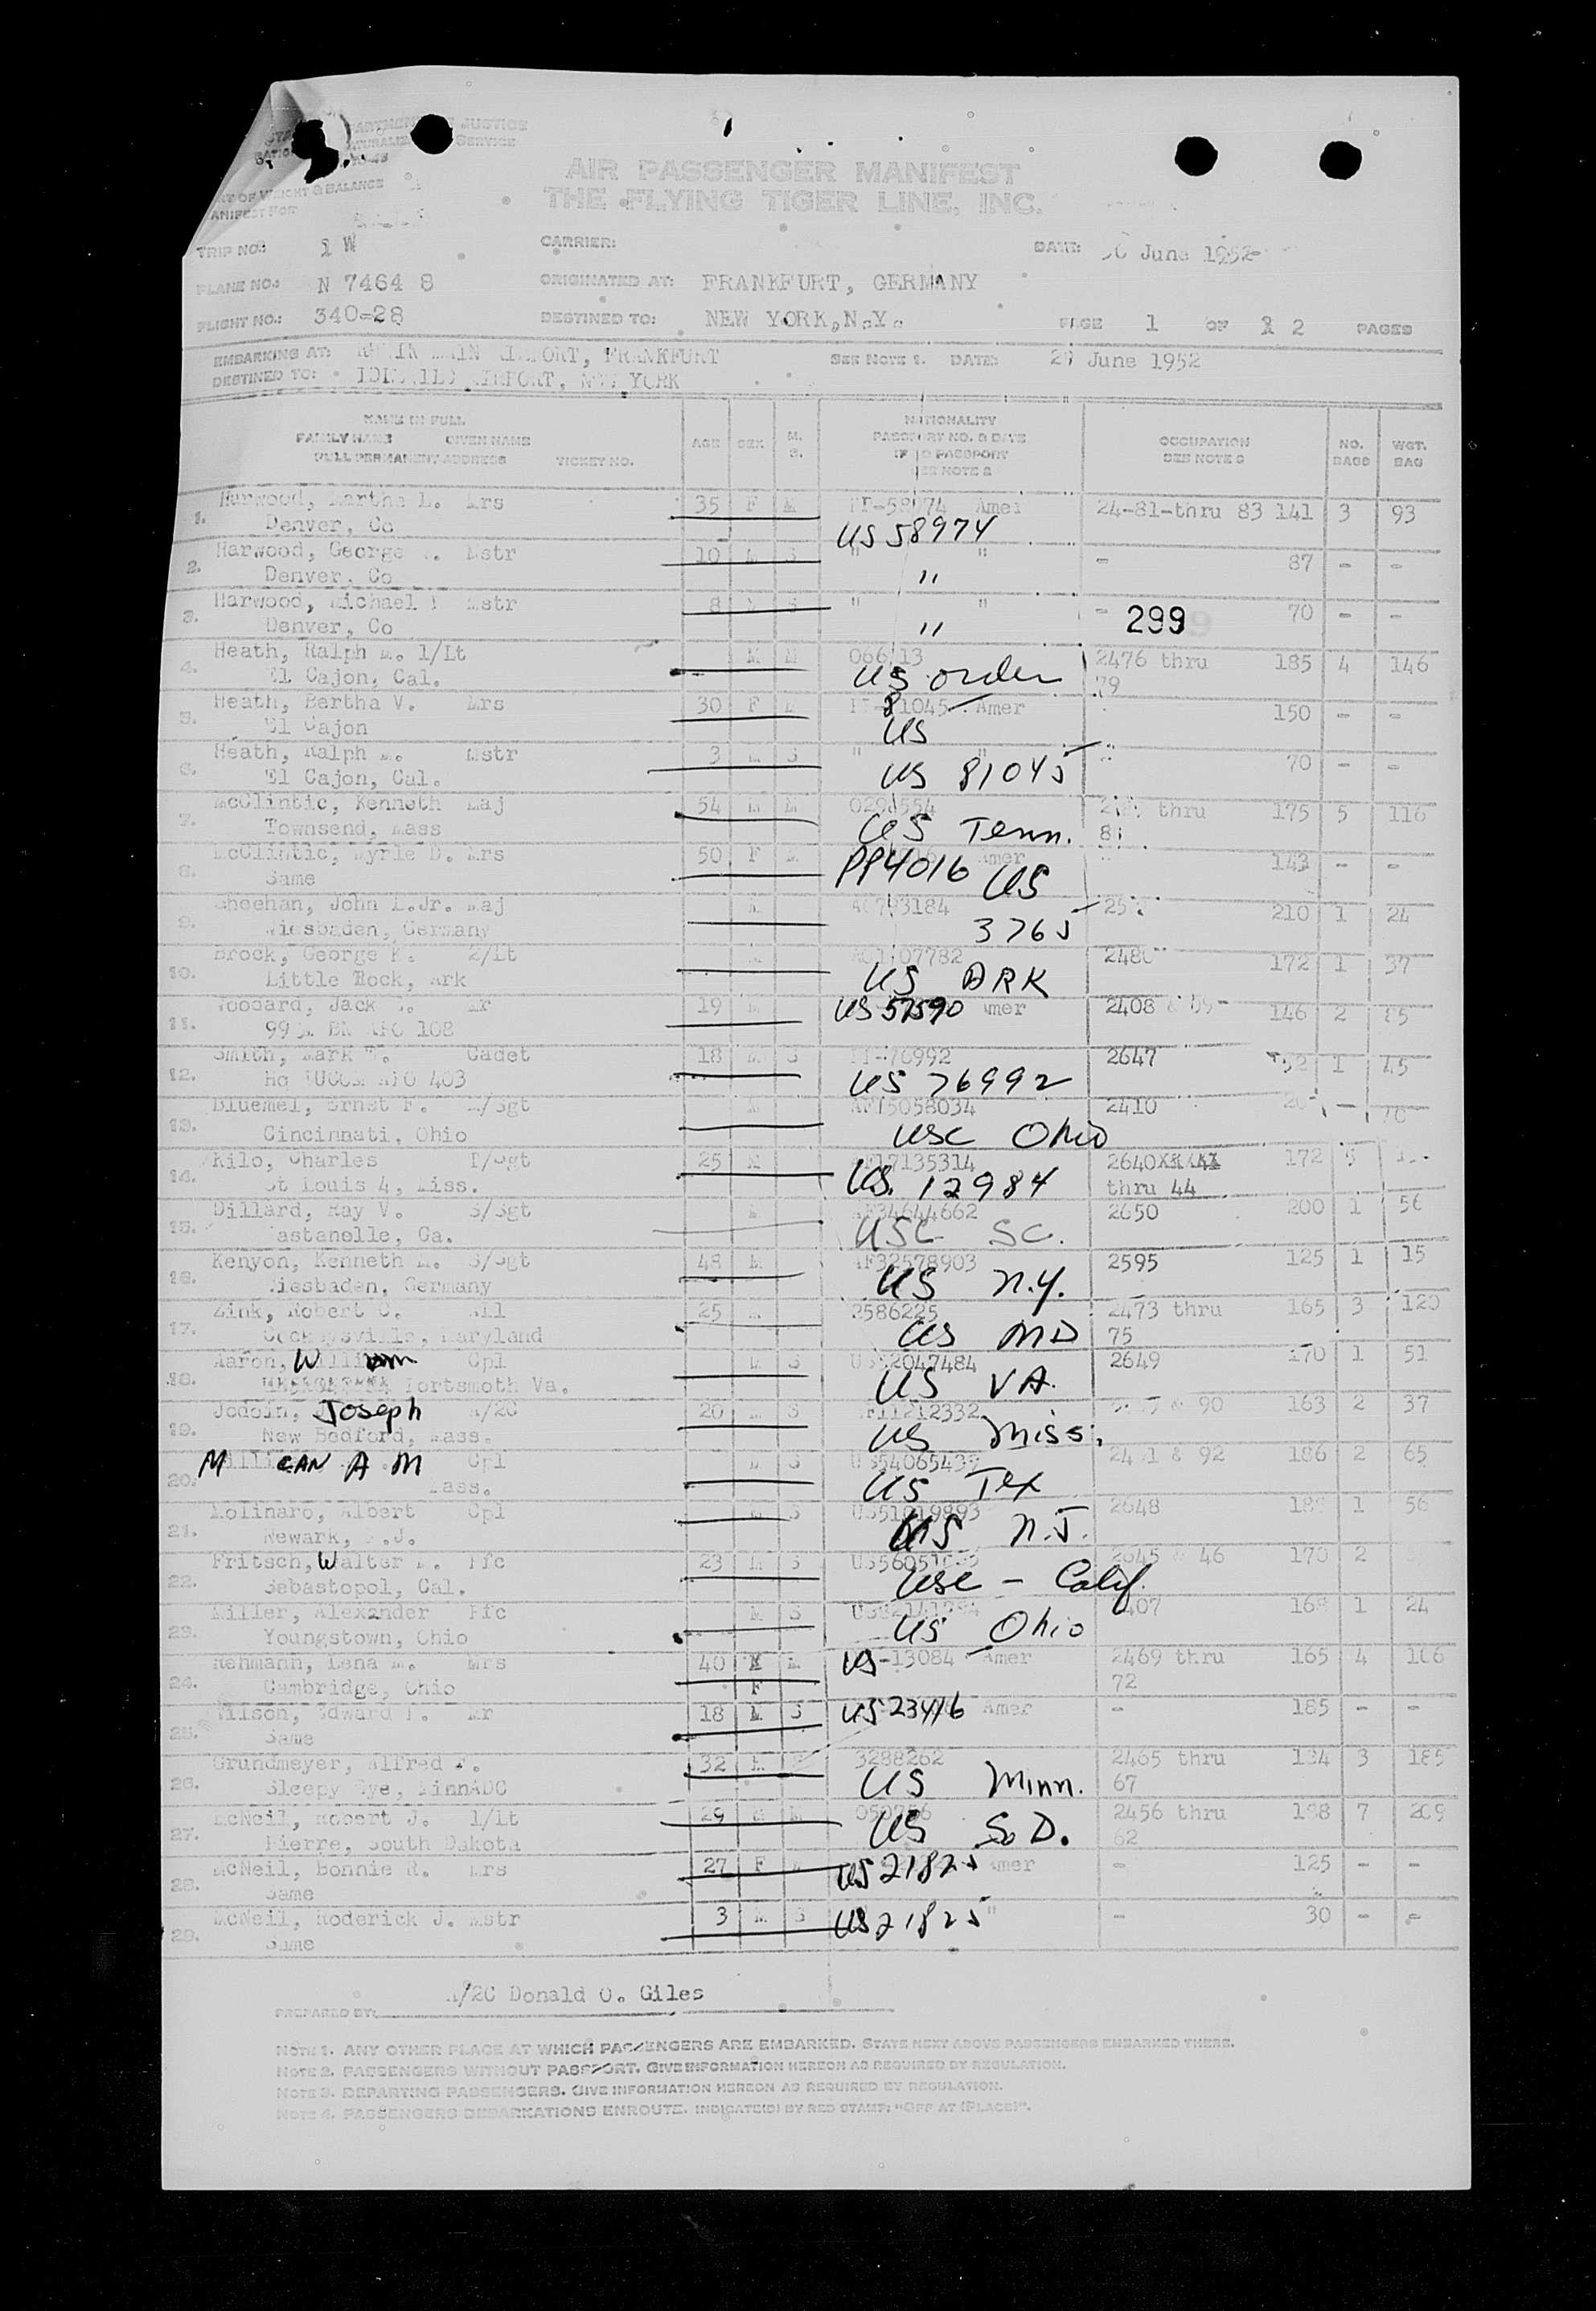 JUSTICE
SERVICE
WEIGHT & BALANCE
MANIFEST FOR
AIR PASSENGER MANIFEST
THE FLYING TIGER LINE, INC.
TRIP NO: 1 W CARRIER: DATE: June 1952
PLANE NO.: N 7464 8 ORIGINATED AT: FRANKFURT, GERMANY
FLIGHT NO.: 340-28 DESTINED TO: NEW YORK, N.Y. PAGE 1 OF 2 PAGES
EMBARKING AT: RHEIN MAIN AIRPORT, FRANKFURT SEE NOTE 1. DATE: June 1952
DESTINED TO: IDLEWILD AIRPORT, NEW YORK
NAME IN FULL NATIONALITY
FAMILY NAME GIVEN NAME AGE SEX M. S. PASSPORT NO. & DATE OCCUPATION NO. BAGS WGT. BAG
FULL PERMANENT ADDRESS TICKET NO. IF NO PASSPORT SEE NOTE 2 SEE NOTE 3
1. Harwood, Martha L. Mrs 35 F M Amer 24-81-thru 83 141 3 93
Denver, Co US 58974
2. Harwood, George Mstr 10 M S " " - 87 - -
Denver, Co "
3. Harwood, Michael Mstr 8 M S " " - 299 70 - -
Denver, Co "
4. Heath, Ralph M. 1/Lt M M 2476 thru 185 4 146
El Cajon, Cal. US order 79
5. Heath, Bertha V. Mrs 30 F M 81045 Amer 150 - -
El Cajon US
6. Heath, Ralph M. Mstr 3 M S " " " 70 - -
El Cajon, Cal. US 81045
7. McClintic, Kenneth Maj 54 M M thru 175 5 116
Townsend, Mass US Tenn.
8. McClintic, Myrle D. Mrs 50 F M Amer " 143 - -
Same PP4016 US
9. Sheehan, John L.Jr. Maj M 210 1 24
Wiesbaden, Germany 3765
10. Brock, George K. 2/Lt M 172 1 37
Little Rock, Ark US ARK
11. Woodard, Jack Mr 19 M US 57590 Amer 2408 146 2 85
APO 108
12. Smith, Mark T. Cadet 18 M S 76992 2647 1 45
Hq EUCOM APO 403 US 76992
13. Bluemel, Ernst F. M/Sgt M AF15058034 2410
Cincinnati, Ohio USC Ohio
14. Kilo, Charles T/Sgt 25 M AF17135314 2640 172 5
St Louis 4, Miss. US. 12984 thru 44
15. Dillard, Ray V. S/Sgt M AF34644662 2650 200 1 56
Ga. USC SC.
16. Kenyon, Kenneth M. S/Sgt 48 M AF32578903 2595 125 1 15
Wiesbaden, Germany US N.Y.
17. Zink, Robert C. 25 M 2586225 2473 thru 165 3 120
Cockeysville, Maryland US MD 75
18. Aaron, William Cpl M S 2649 170 1 51
Portsmoth Va. US VA.
19. Jodoin, Joseph A/2C 20 M S AF11212332 & 90 163 2 37
New Bedford, Mass. US Miss.
20. Millican A M Cpl M S & 92 186 2 65
Mass. US Tex
21. Molinaro, Albert Cpl M S 2648 1 56
Newark, N.J. US N.J.
22. Fritsch, Walter Pfc 23 M S 2645 & 46 170 2
Sebastopol, Cal. USC - Calif.
23. Miller, Alexander Pfc M S 168 1 24
Youngstown, Ohio US Ohio
24. Rehmann, Lena M. Mrs 40 M M US-13084 Amer 2469 thru 165 4 106
Cambridge, Ohio F 72
25. Wilson, Edward Mr 18 M S US 23416 Amer - 185 - -
Same
26. Grundmeyer, Alfred F. 32 M 3288262 2465 thru 3 185
Sleepy Eye, Minn ADC US Minn. 67
27. McNeil, Robert J. 1/Lt 29 M M 2456 thru 7 209
Pierre, South Dakota US So D. 62
28. McNeil, Bonnie R. Mrs 27 F M US 21825 Amer - 125 - -
Same
29. McNeil, Roderick J. Mstr 3 M S US 21825 " - 30 - -
Same
PREPARED BY: A/2C Donald O. Giles
NOTE 1. ANY OTHER PLACE AT WHICH PASSENGERS ARE EMBARKED. STATE NEXT ABOVE PASSENGERS EMBARKED THERE.
NOTE 2. PASSENGERS WITHOUT PASSPORT. GIVE INFORMATION HEREON AS REQUIRED BY REGULATION.
NOTE 3. DEPARTING PASSENGERS. GIVE INFORMATION HEREON AS REQUIRED BY REGULATION.
NOTE 4. PASSENGERS DEBARKATIONS ENROUTE. INDICATE(D) BY RED STAMP: "OFF AT (PLACE)".